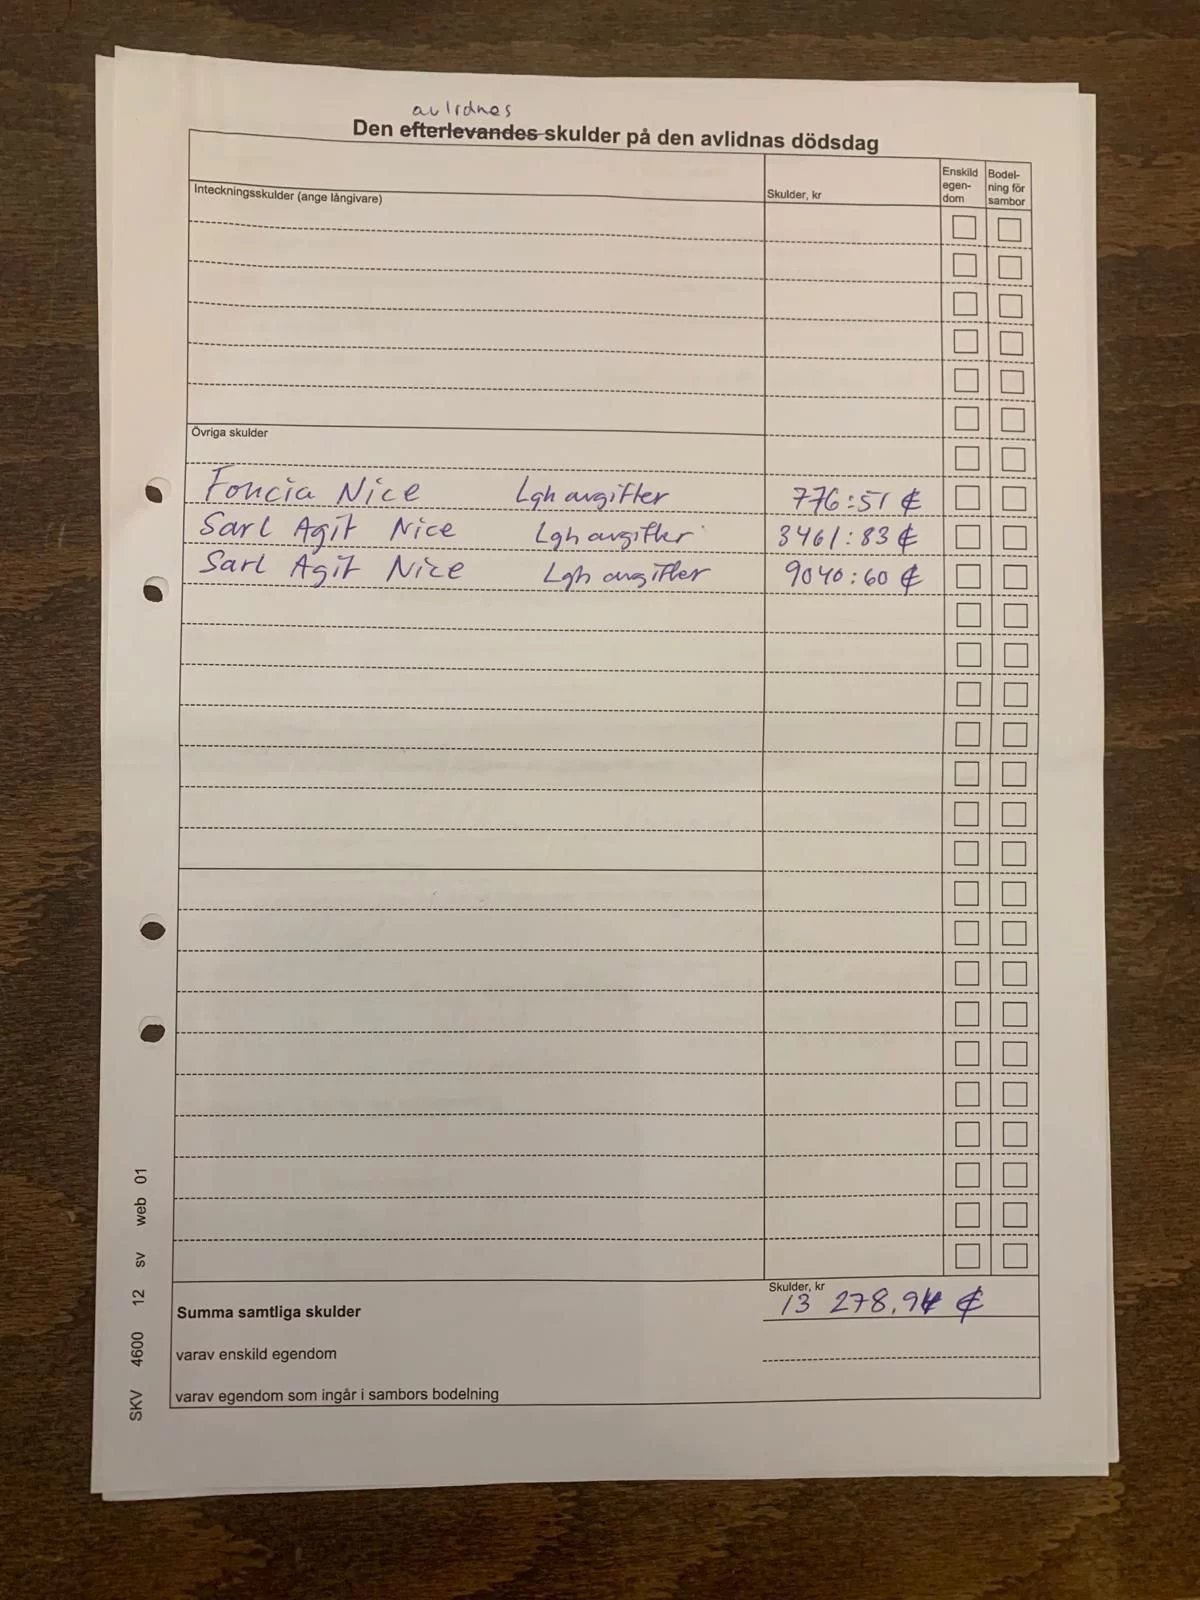 avlidnes
Den efterlevandes skulder på den avlidnas dödsdag
Inteckningsskulder (ange långivare)
Skulder, kr
Enskild egen-dom
Bodel-ning för sambor
Övriga skulder
Foncia Nice Lgh avgifter 776:51 €
Sarl Agit Nice Lgh avgifter 3461:83 €
Sarl Agit Nice Lgh avgifter 9040:60 €
Summa samtliga skulder
Skulder, kr
13 278,94 €
varav enskild egendom
varav egendom som ingår i sambors bodelning
SKV 4600 12 sv web 01